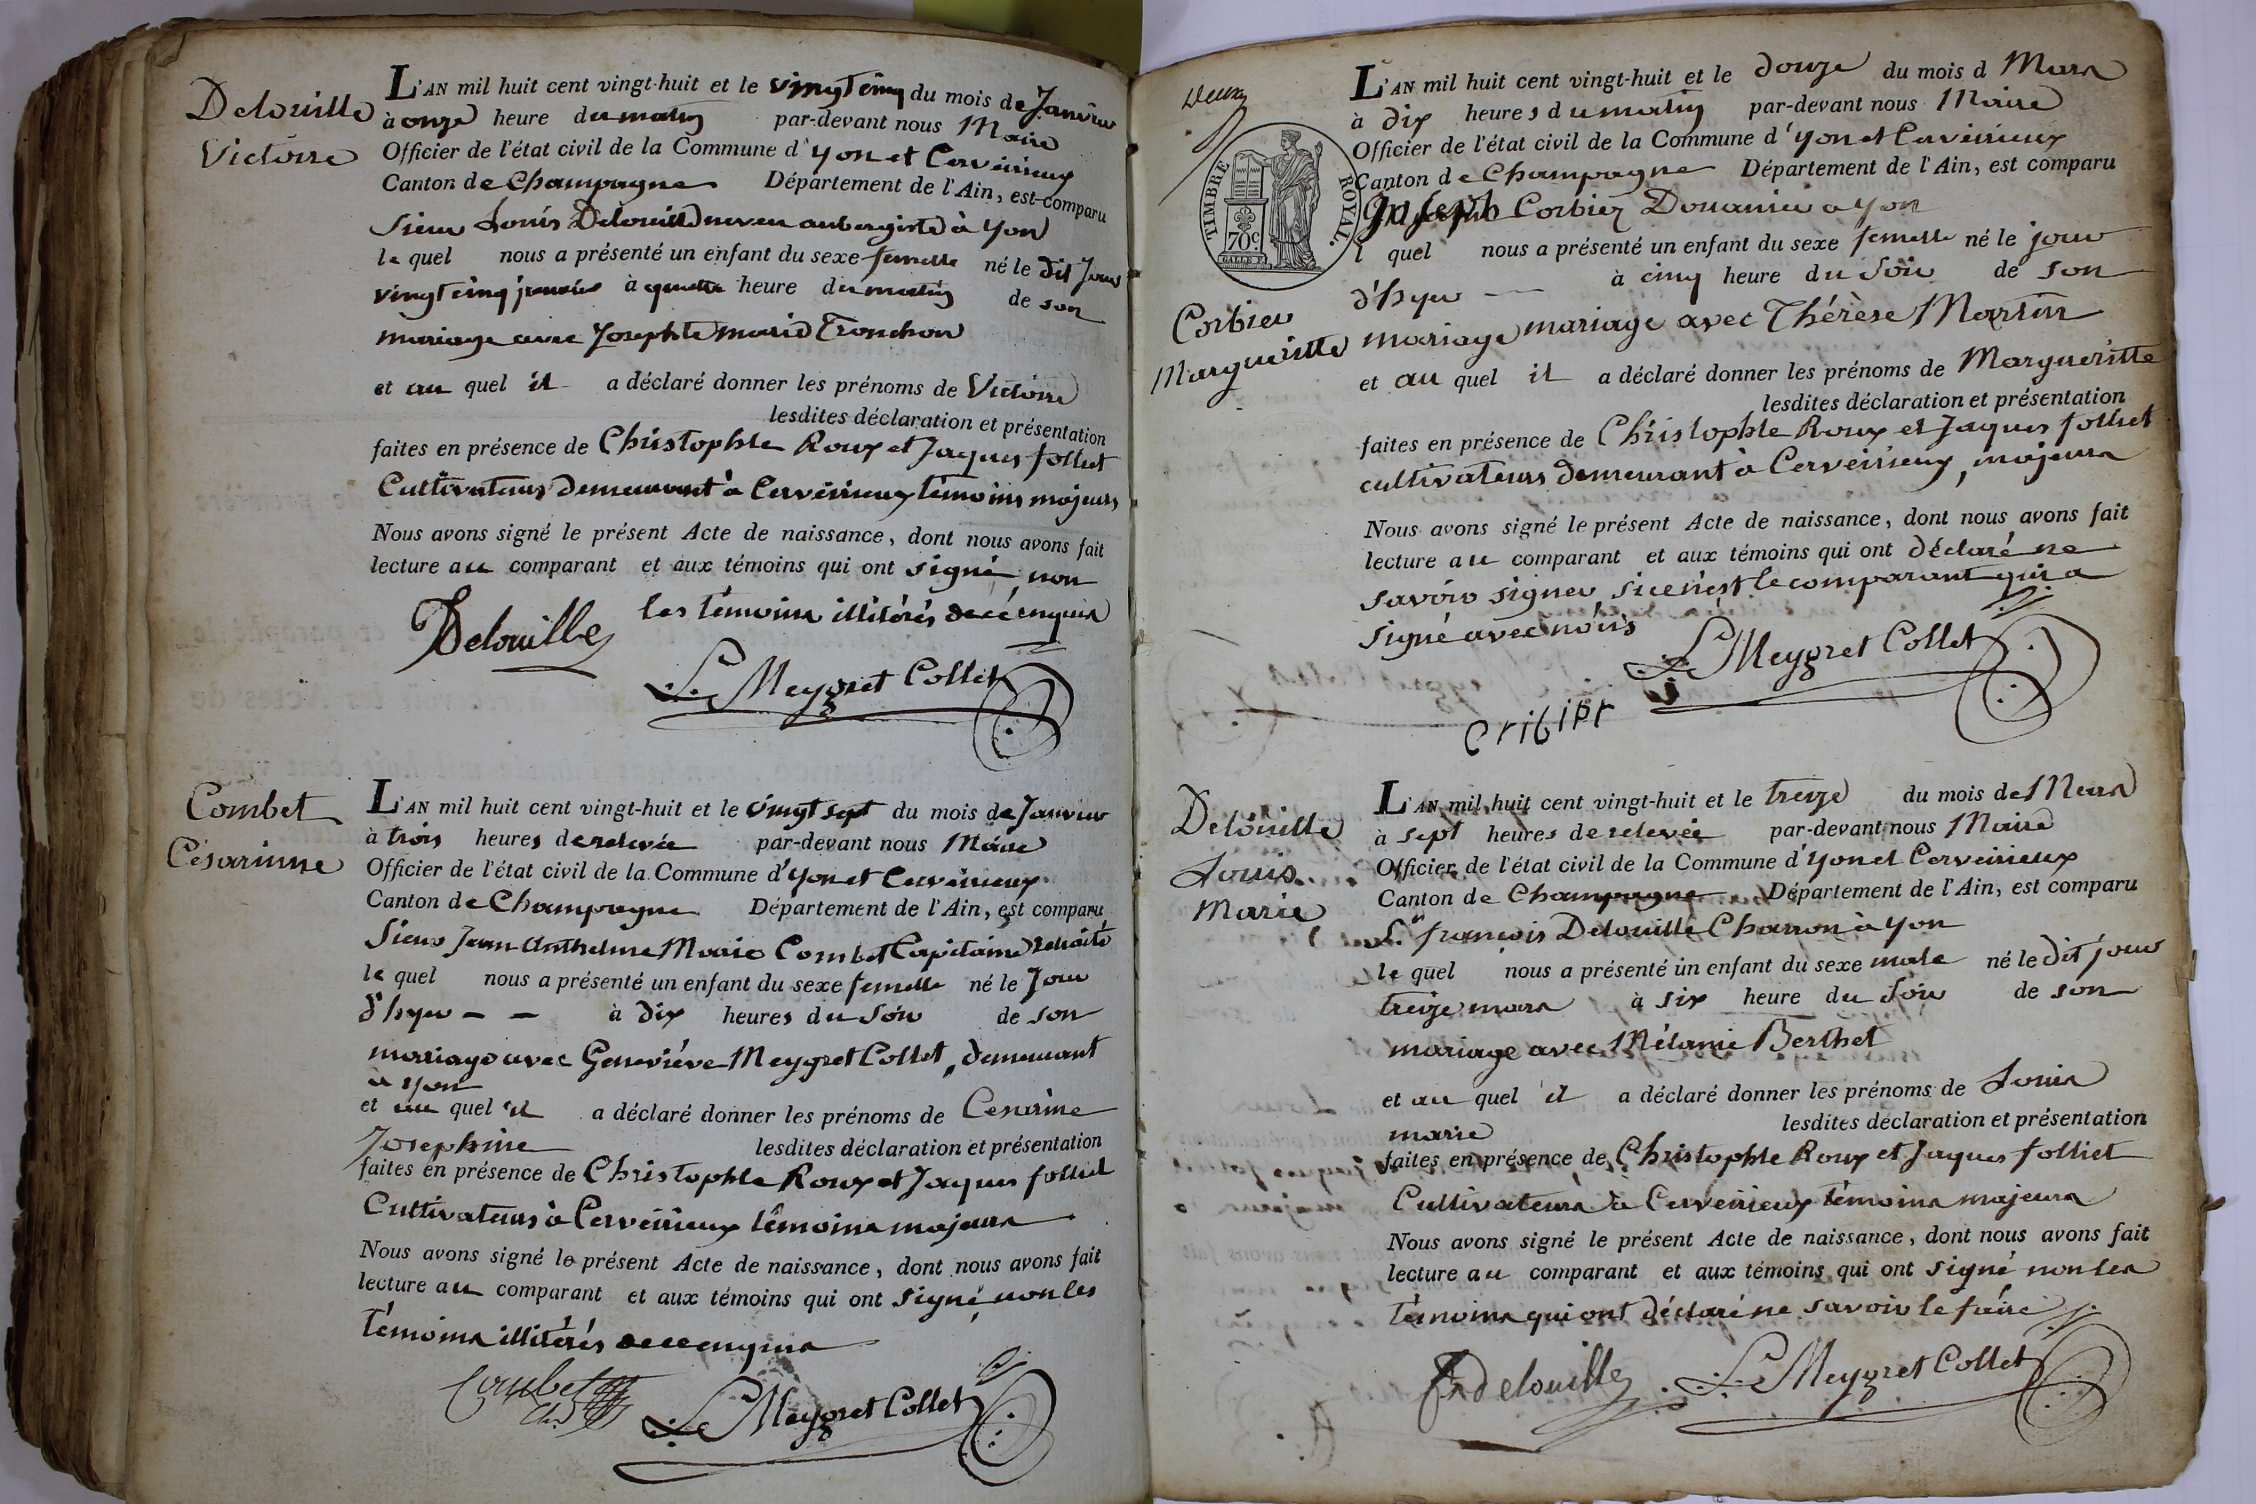 Delouille
Victoire
L'AN mil huit cent vingt-huit et le vingt cinq du mois de Janvier
à onze heure du matin par-devant nous Maire
Officier de l'état civil de la Commune d'yon et Cerveirieux
Canton de Champagne Département de l'Ain, est comparu
Sieur Louis Delouille neveu aubergiste à yon
le quel nous a présenté un enfant du sexe femelle né le dit Jour
vingt cinq janvier à quatre heure du matin de son
mariage avec Josephte marie Tronchon
et au quel il a déclaré donner les prénoms de Victoire
lesdites déclaration et présentation
faites en présence de Christophle Roux et Jaques folliet
Cultivateurs demeurant à Cerveirieux témoins majeurs
Nous avons signé le présent Acte de naissance, dont nous avons fait
lecture au comparant et aux témoins qui ont signé non
les témoins illitérés de ce enquis
Delouille
L. Meygret Collet
Combet
Césarinne
L'AN mil huit cent vingt-huit et le vingt sept du mois de Janvier
à trois heures de relevée par-devant nous Maire
Officier de l'état civil de la Commune d'yon et Cerveirieux
Canton de Champagne Département de l'Ain, est comparu
Sieur Jean Anthelme Marie Combet Capitaine retraité
le quel nous a présenté un enfant du sexe femelle né le Jour
d'hyer - - à dix heures du Soir de son
mariage avec Geneviéve Meygret Collet, demeurant
à yon
et au quel il a déclaré donner les prénoms de Cesarine
Josephine lesdites déclaration et présentation
faites en présence de Christophle Roux et Jaques folliet
Cultivateurs à Cerveirieux témoins majeurs
Nous avons signé le présent Acte de naissance, dont nous avons fait
lecture au comparant et aux témoins qui ont signé non les
témoins illitérés de ce enquis
Combet
L. Meygret Collet
deux
TIMBRE ROYAL.
70c
Corbier
Margueritte
L'AN mil huit cent vingt-huit et le douze du mois d Mars
à dix heures du matin par-devant nous Maire
Officier de l'état civil de la Commune d'yon et Cerveirieux
Canton de Champagne Département de l'Ain, est comparu
Joseph Corbier Douanier a yon
l quel nous a présenté un enfant du sexe femelle né le jour
d'hyer — à cinq heure du Soir de son
mariage mariage avec Thérèse Martin
et au quel il a déclaré donner les prénoms de Margueritte
lesdites déclaration et présentation
faites en présence de Christophle Roux et Jaques folliet
cultivateurs demeurant à Cerveirieux, majeurs
Nous avons signé le présent Acte de naissance, dont nous avons fait
lecture au comparant et aux témoins qui ont déclaré ne
savoir signer si ce n'est le comparant qui a
signé avec nous
L. Meygret Collet
Delouille
Louis
Marie
L'AN mil huit cent vingt-huit et le treize du mois de Mars
à sept heures de relevée par-devant nous Maire
Officier de l'état civil de la Commune d'yon et Cerveirieux
Canton de Champagne Département de l'Ain, est comparu
Sr françois Delouille Charron à yon
le quel nous a présenté un enfant du sexe male né le dit jour
treize mars à six heure du Soir de son
mariage avec Mélanie Berthet
et au quel il a déclaré donner les prénoms de Louis
marie lesdites déclaration et présentation
faites en présence de Christophle Roux et Jaques folliet
Cultivateurs à Cerveirieux témoins majeurs
Nous avons signé le présent Acte de naissance, dont nous avons fait
lecture au comparant et aux témoins qui ont signé non les
témoins qui ont déclaré ne savoir le faire
fr delouille
L. Meygret Collet